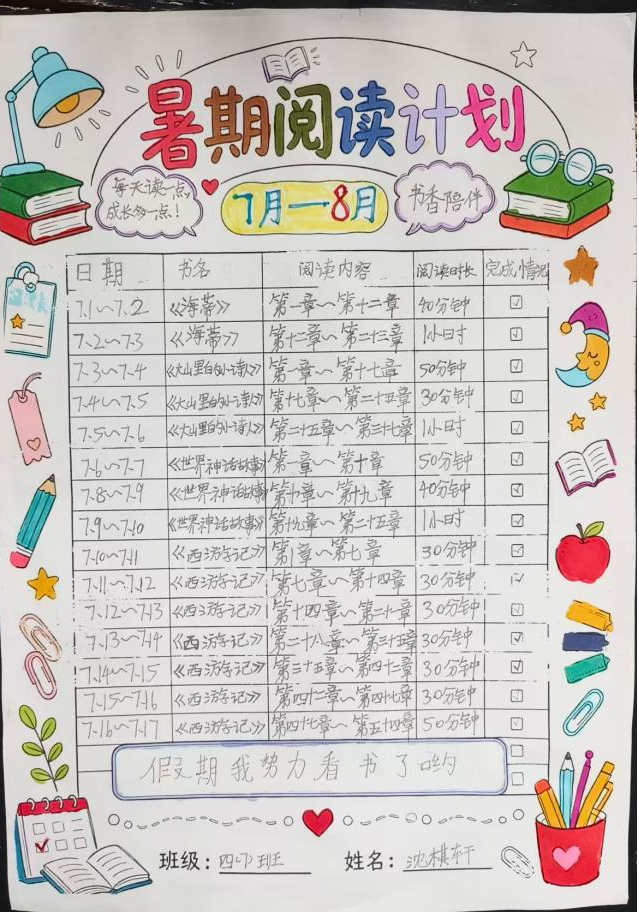 暑期阅读计划
每天读一点,
成长多一点!
7月—8月
书香陪伴
日期 书名 阅读内容 阅读时长 完成情况
7.1~7.2 《海蒂》 第一章~第十二章 40分钟
7.2~7.3 《海蒂》 第十二章~第二十三章 1小时
7.3~7.4 《大山里的小诗人》 第一章~第十七章 50分钟
7.4~7.5 《大山里的小诗人》 第十七章~第二十五章 30分钟
7.5~7.6 《大山里的小诗人》 第二十五章~第三十七章 1小时
7.6~7.7 《世界神话故事》 第一章~第十章 50分钟
7.8~7.9 《世界神话故事》 第十章~第十九章 40分钟
7.9~7.10 《世界神话故事》 第十九章~第二十五章 1小时
7.10~7.11 《西游记》 第一章~第七章 30分钟
7.11~7.12 《西游记》 第七章~第十四章 30分钟
7.12~7.13 《西游记》 第十四章~第二十章 30分钟
7.13~7.14 《西游记》 第二十八章~第三十五章 30分钟
7.14~7.15 《西游记》 第三十五章~第四十二章 30分钟
7.15~7.16 《西游记》 第四十二章~第四十七章 30分钟
7.16~7.17 《西游记》 第四十七章~第五十四章 50分钟
假期我努力看书了哟
班级:四(1)班 姓名:沈棋轩